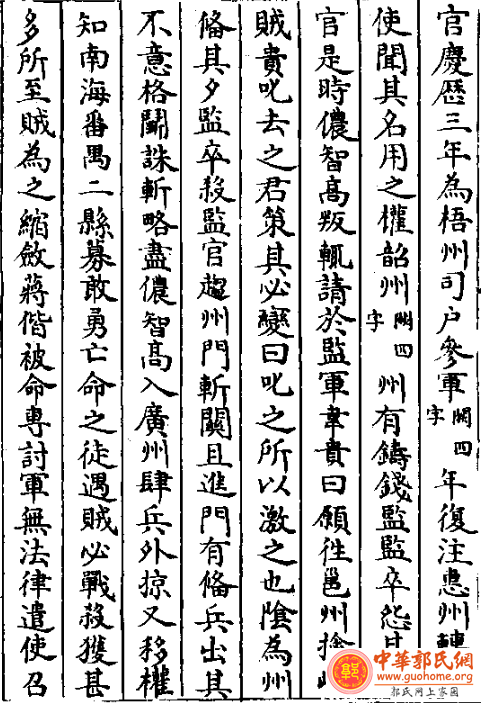 官慶歷三年為梧州司户參軍闕四字年復注惠州
使聞其名用之權韶州闕四字州有鑄錢監監卒怨
官是時儂智高叛輒請於監軍韋貴曰願徃邕州
賊貴叱去之君策其必變曰叱之所以激之也隂為州
備其夕監卒殺監官趨州門斬關且進門有備兵出其
不意格鬬誅斬略盡儂智高入廣州肆兵外掠又移權
知南海番禺二縣募敢勇亡命之徒遇賊必戰殺獲甚
多所至賊為之縮斂蔣偕被命專討軍無法律遣使召
中華郭氏網
www.guohome.org
郭氏网上家园